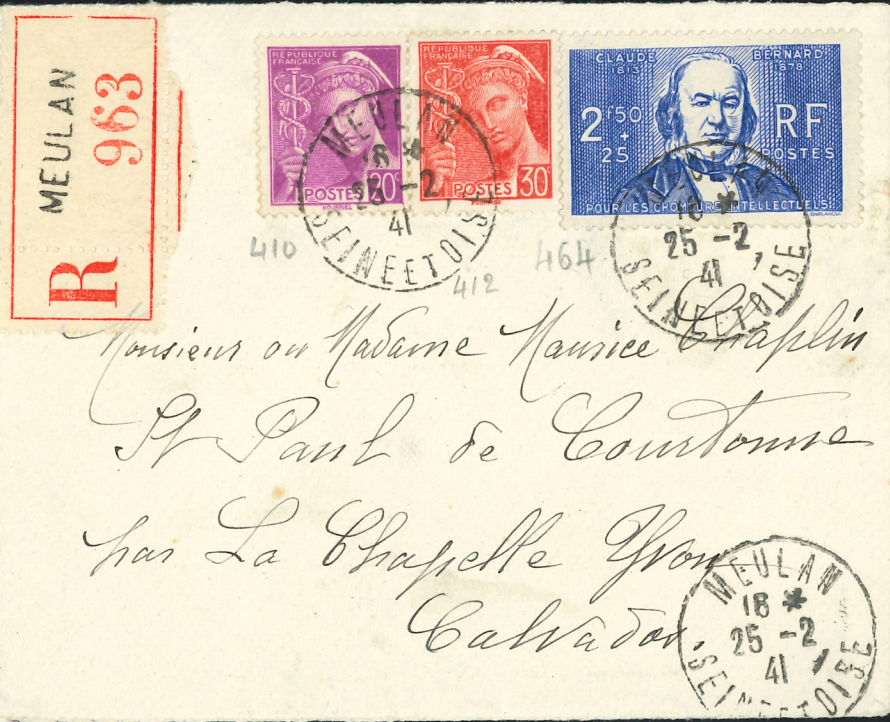 MEULAN
R 963
RÉPUBLIQUE
FRANÇAISE
POSTES
20c
RÉPUBLIQUE
FRANÇAISE
POSTES
30c
CLAUDE BERNARD
1813 1878
2f50
+
25
RF
POSTES
POUR LES CHOMEURS INTELLECTUELS
MEULAN
18 *
25 -2
41
SEINE ET OISE
MEULAN
18 *
25 -2
41
SEINE ET OISE
410
412
464
Monsieur ou Madame Maurice Chaplin
St Paul de Courtonne
par La Chapelle Yvon
Calvados.
MEULAN
18 *
25 -2
41
SEINE ET OISE